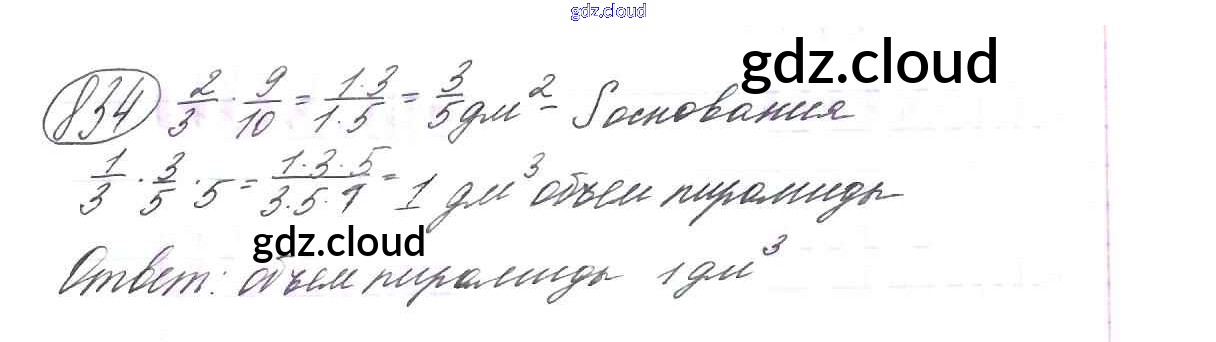 gdz.cloud
gdz.cloud
834 2/3 · 9/10 = 1·3/1·5 = 3/5 дм² – S основания
1/3 · 3/5 · 5 = 1·3·5/3·5·1 = 1 дм³ объем пирамиды
gdz.cloud
Ответ: объем пирамиды 1 дм³